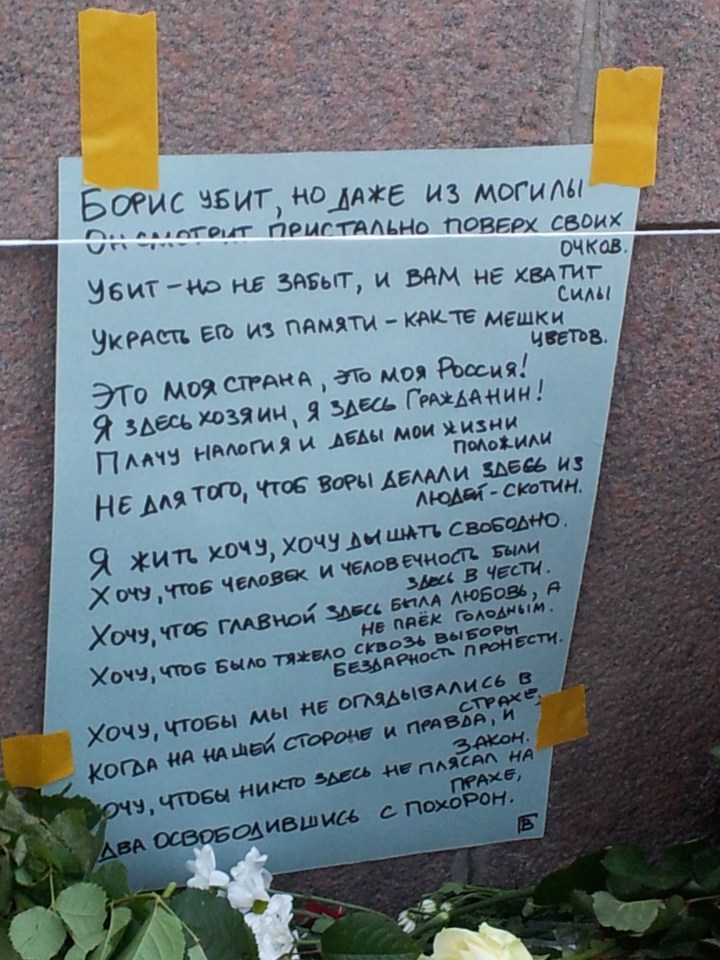 БОРИС УБИТ, НО ДАЖЕ ИЗ МОГИЛЫ
ОН СМОТРИТ ПРИСТАЛЬНО ПОВЕРХ СВОИХ
ОЧКОВ.
УБИТ – НО НЕ ЗАБЫТ, И ВАМ НЕ ХВАТИТ
СИЛЫ
УКРАСТЬ ЕГО ИЗ ПАМЯТИ – КАК ТЕ МЕШКИ
ЦВЕТОВ.
ЭТО МОЯ СТРАНА, ЭТО МОЯ РОССИЯ!
Я ЗДЕСЬ ХОЗЯИН, Я ЗДЕСЬ ГРАЖДАНИН!
ПЛАЧУ НАЛОГИ Я И ДЕДЫ МОИ ЖИЗНИ
ПОЛОЖИЛИ
НЕ ДЛЯ ТОГО, ЧТОБ ВОРЫ ДЕЛАЛИ ЗДЕСЬ ИЗ
ЛЮДЕЙ – СКОТИН.
Я ЖИТЬ ХОЧУ, ХОЧУ ДЫШАТЬ СВОБОДНО.
ХОЧУ, ЧТОБ ЧЕЛОВЕК И ЧЕЛОВЕЧНОСТЬ БЫЛИ
ЗДЕСЬ В ЧЕСТИ.
ХОЧУ, ЧТОБ ГЛАВНОЙ ЗДЕСЬ БЫЛА ЛЮБОВЬ, А
НЕ ПАЁК ГОЛОДНЫМ.
ХОЧУ, ЧТОБ БЫЛО ТЯЖЕЛО СКВОЗЬ ВЫБОРЫ
БЕЗДАРНОСТЬ ПРОНЕСТИ.
ХОЧУ, ЧТОБЫ МЫ НЕ ОГЛЯДЫВАЛИСЬ В
СТРАХЕ,
КОГДА НА НАШЕЙ СТОРОНЕ И ПРАВДА, И
ЗАКОН.
ХОЧУ, ЧТОБЫ НИКТО ЗДЕСЬ НЕ ПЛЯСАЛ НА
ПРАХЕ,
ЕДВА ОСВОБОДИВШИСЬ С ПОХОРОН.